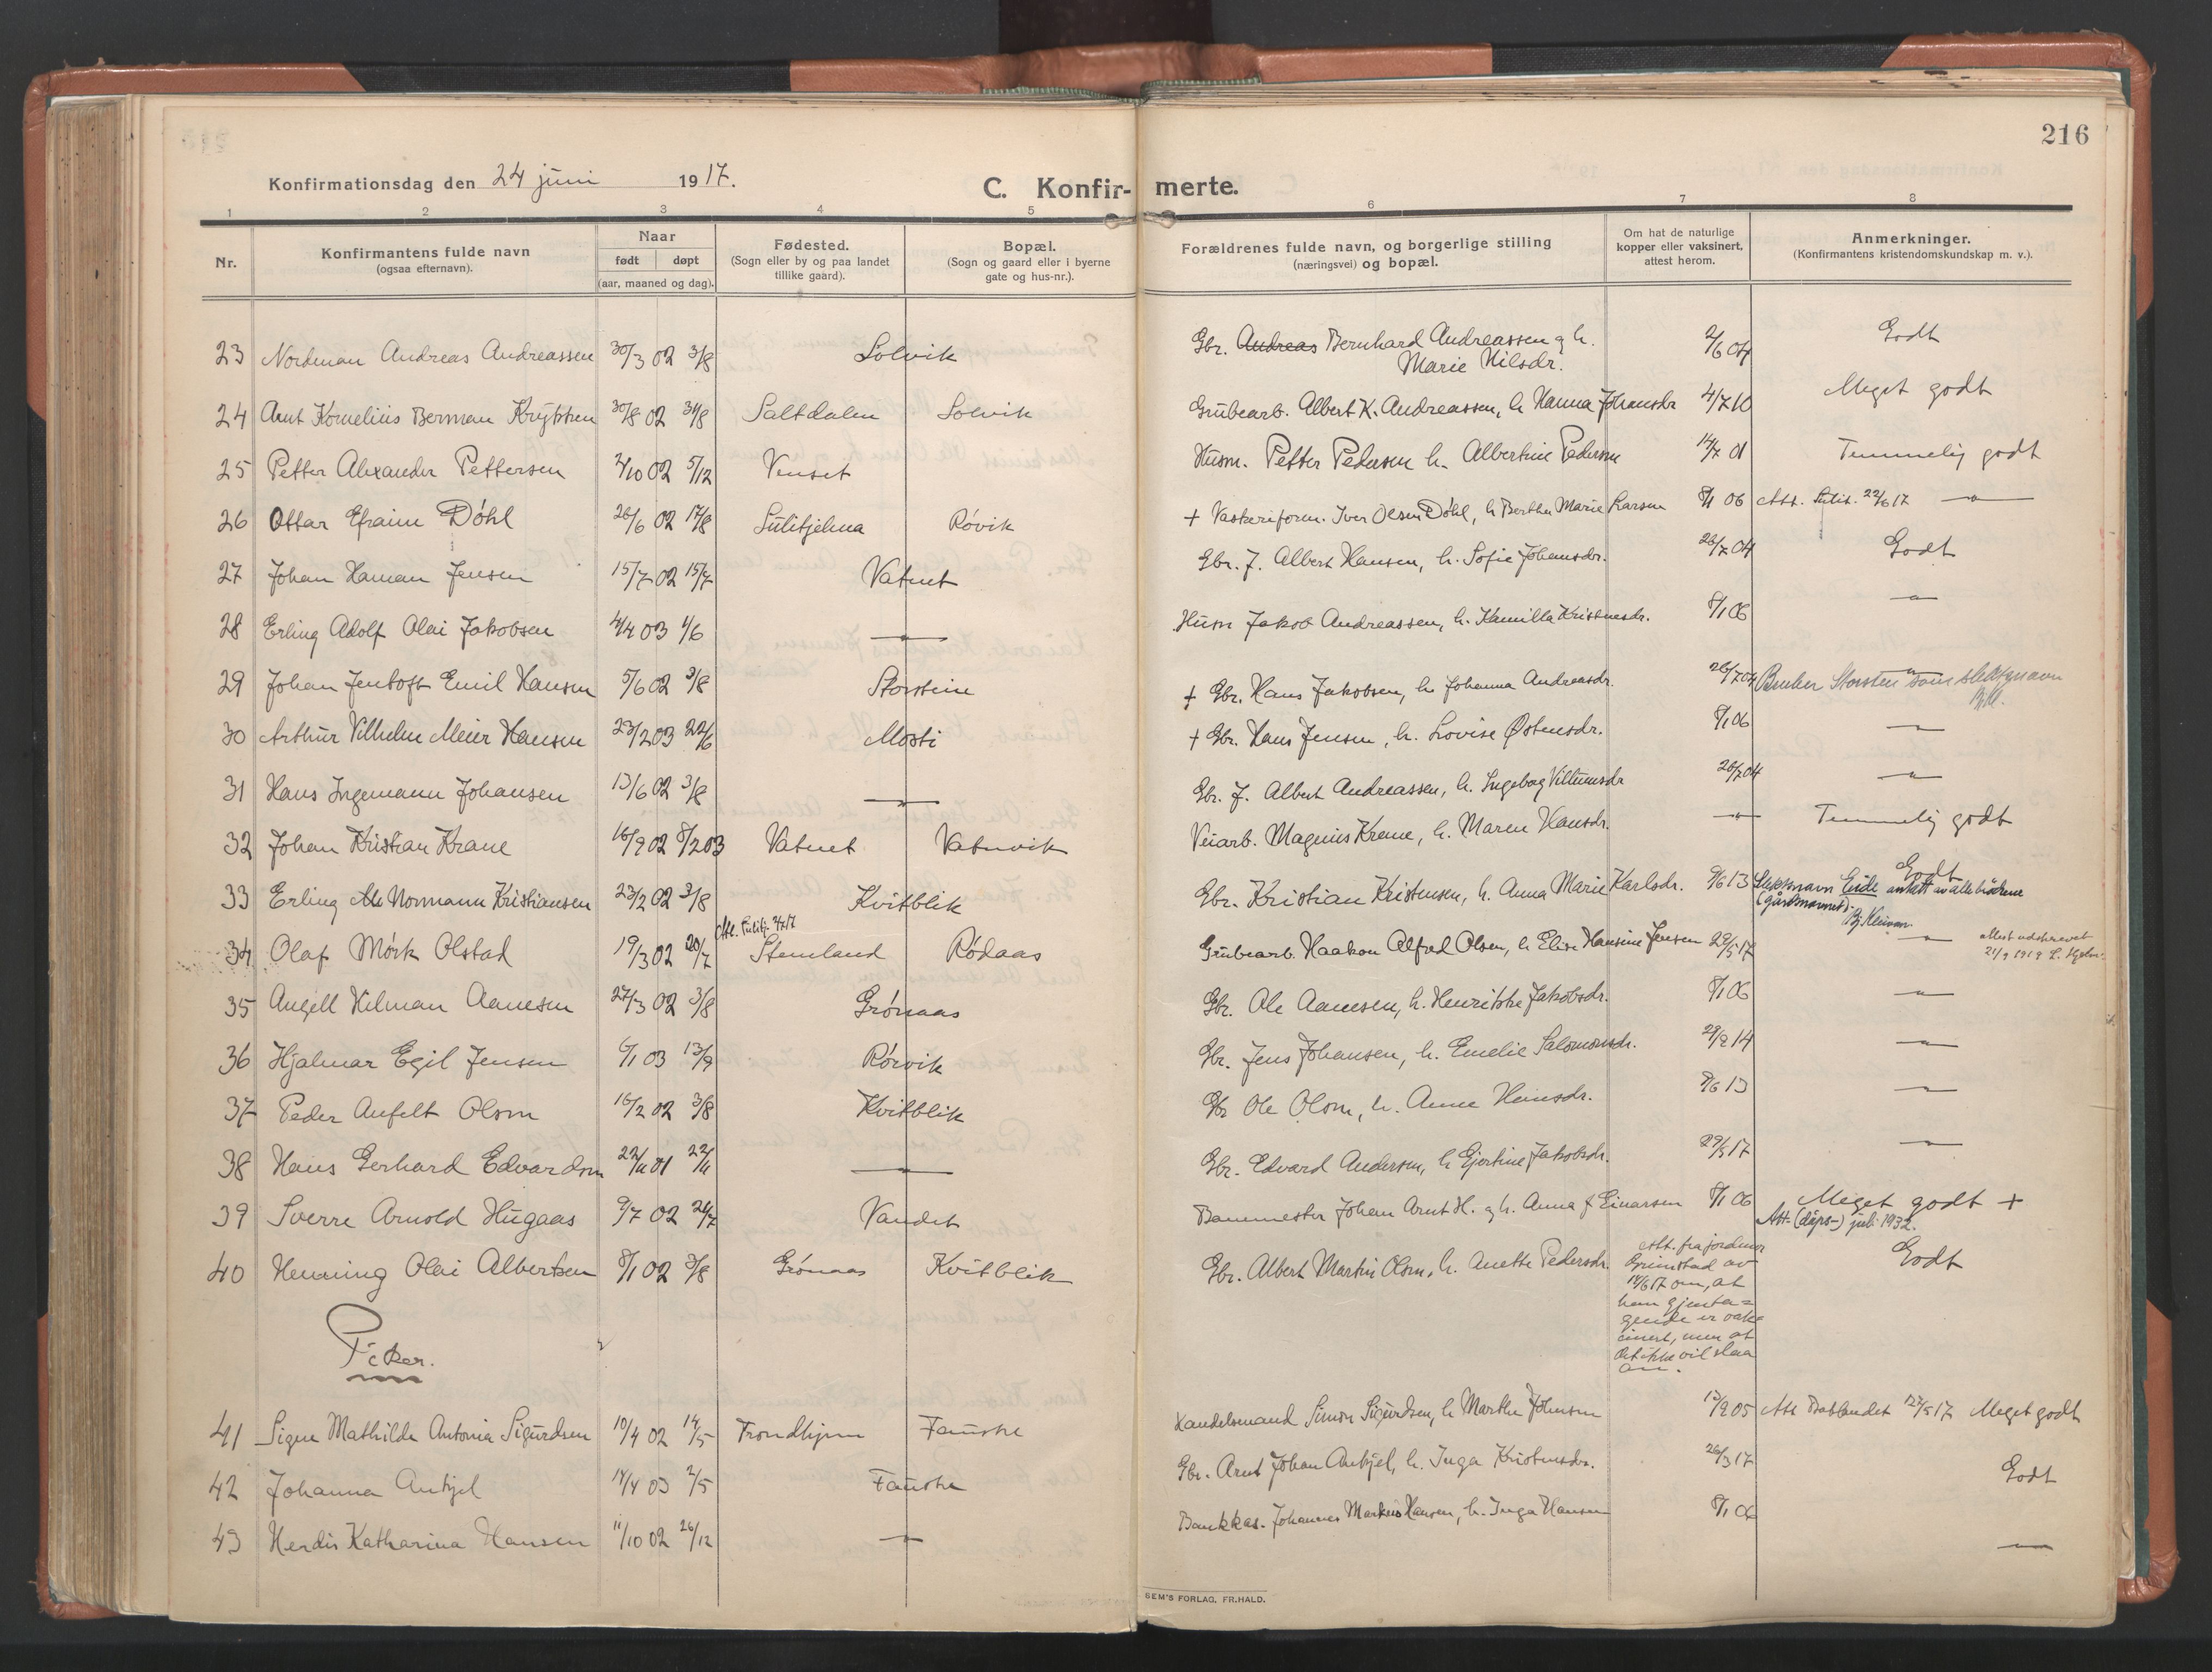 216
Konfirmationsdag den 24 juni 1917.
C. Konfir- merte.
1 2 3 4 5 6 7 8
Nr.
Konfirmantens fulde navn
(ogsaa efternavn).
Naar
født døpt
(aar, maaned og dag).
Fødested.
(Sogn eller by og paa landet
tillike gaard).
Bopæl.
(Sogn og gaard eller i byerne
gate og hus-nr.).
Forældrenes fulde navn, og borgerlige stilling
(næringsvei) og bopæl.
Om hat de naturlige
kopper eller vaksinert,
attest herom.
Anmerkninger.
(Konfirmantens kristendomskundskap m. v.).
23 Nordman Andreas Andreassen 30/3 02 3/8 Solvik Gbr. Andreas Bernhard Andreassen og h. 2/6 04 Godt
Marie Nilsdr.
24 Arnt Kornelius Berman 30/8 02 31/8 Saltdalen Solvik Grubearb. Albert K. Andreassen, h Hanna Johansdr 4/7 10 Meget godt
25 Petter Alexander Pettersen 2/10 02 5/12 Venset Husm. Petter Pedersen h. Albertine Pedersen 14/7 01 Temmelig godt
26 Ottar Efraim Döhl 26/6 02 17/8 Sulitjelma Róvik + Vaskeriform. Iver Olsen Döhl, h Berthe Marie Larsen 8/1 06 Att. Sulit. 22/6 17 — " —
27 Johan Haman Jensen 15/7 02 15/7 Vatnet Gbr. J. Albert Hansen, h. Sofie Johansdr. 26/7 04 Godt
28 Erling Adolf Olai Jakobsen 4/4 03 1/6 — " — Husm Jakob Andreassen, h. Kamilla Kristensdr. 8/1 06 — " —
29 Johan Jentoft Emil Hansen 5/6 02 3/8 Storstein + Gbr. Hans Jakobsen, h. Johanna Andreasdr. 26/7 04 — " —
Bruker Storsten som slektsnavn
30 Arthur Vilhelm Meier Hansen 23/2 03 22/6 Mosti + Gbr. Hans Jensen, h. Lovise Østensdr. 8/1 06 — " —
31 Hans Ingemann Johansen 13/6 02 3/8 — " — Gbr. J. Albert Andreassen, h. Ingeborg Villumsdr 26/7 04 — " —
32 Johan Kristian Krane 16/9 02 8/2 03 Vatnet Vatnvik Veiarb. Magnus Krane, h. Maren Hansdr. — " — Temmelig godt
33 Erling Normann Kristiansen 23/2 02 3/8 Kvitblik Gbr. Kristian Kristensen, h. Anna Marie Karlsdr. 9/6 13 Godt
Slektsnavn Eide antatt av alle brødrene
(gårdsnavnet).
34 Olaf Mörk Olstad 19/3 02 20/7 Stemland Rödaas Grubearb. Haakon Alfred Olsen, h Elise Hansine Jensen 29/5 17 — " —
35 Angell Hilman Aanesen 27/3 02 3/8 Grönaas Gbr. Ole Aanesen, h. Henrikke Jakobsdr. 8/1 06 — " —
36 Hjalmar Egil Jensen 6/1 03 13/9 Rörvik Gbr. Jens Johansen, h. Emelie Salomonsdr. 29/9 14 — " —
37 Peder Anfelt Olsen 16/2 02 3/8 Kvitblik Gbr Ole Olsen, h. Anne Heinsdr. 9/6 13 — " —
38 Hans Gerhard Edvardsen 22/11 01 22/11 — " — Gbr. Edvard Andersen, h Gjertine Jakobsdr. 29/5 17 — " —
39 Sverre Arnold Hugaas 9/7 02 26/7 Vandet Banemester Johan Arnt H. og h. Anna f Einarsen 8/1 06 Meget godt +
Att. (dåps-) juli 1932.
40 Henning Olai Albertsen 8/1 02 3/8 Grönaas Kvitblik Gbr. Albert Martin Olsen, h. Anette Pedersdr. Godt
Att. fra jordmor
Grimstad av
14/6 17 om, at
han gjenta=
gende er vak=
cinert, men at
det ikke vil slaa
an.
Piker.
41 Signe Mathilde Antonia Sigurdsen 10/4 02 14/5 Trondhjem Fauske Handelsmand Simon Sigurdsen, h Marthe Johnsen 12/9 05 Att 22/5 17 Meget godt
42 Johanna Ankjel 14/4 03 2/5 Fauske Gbr. Arnt Johan Ankjel, h. Inga Kristensdr. 26/3 17 Godt
43 Herdis Katharina Hansen 11/10 02 26/12 — " — Bankkas. Johannes Markus Hansen, h. Inga Hansen 8/1 06 — " —
SEM'S FORLAG, FR.HALD.